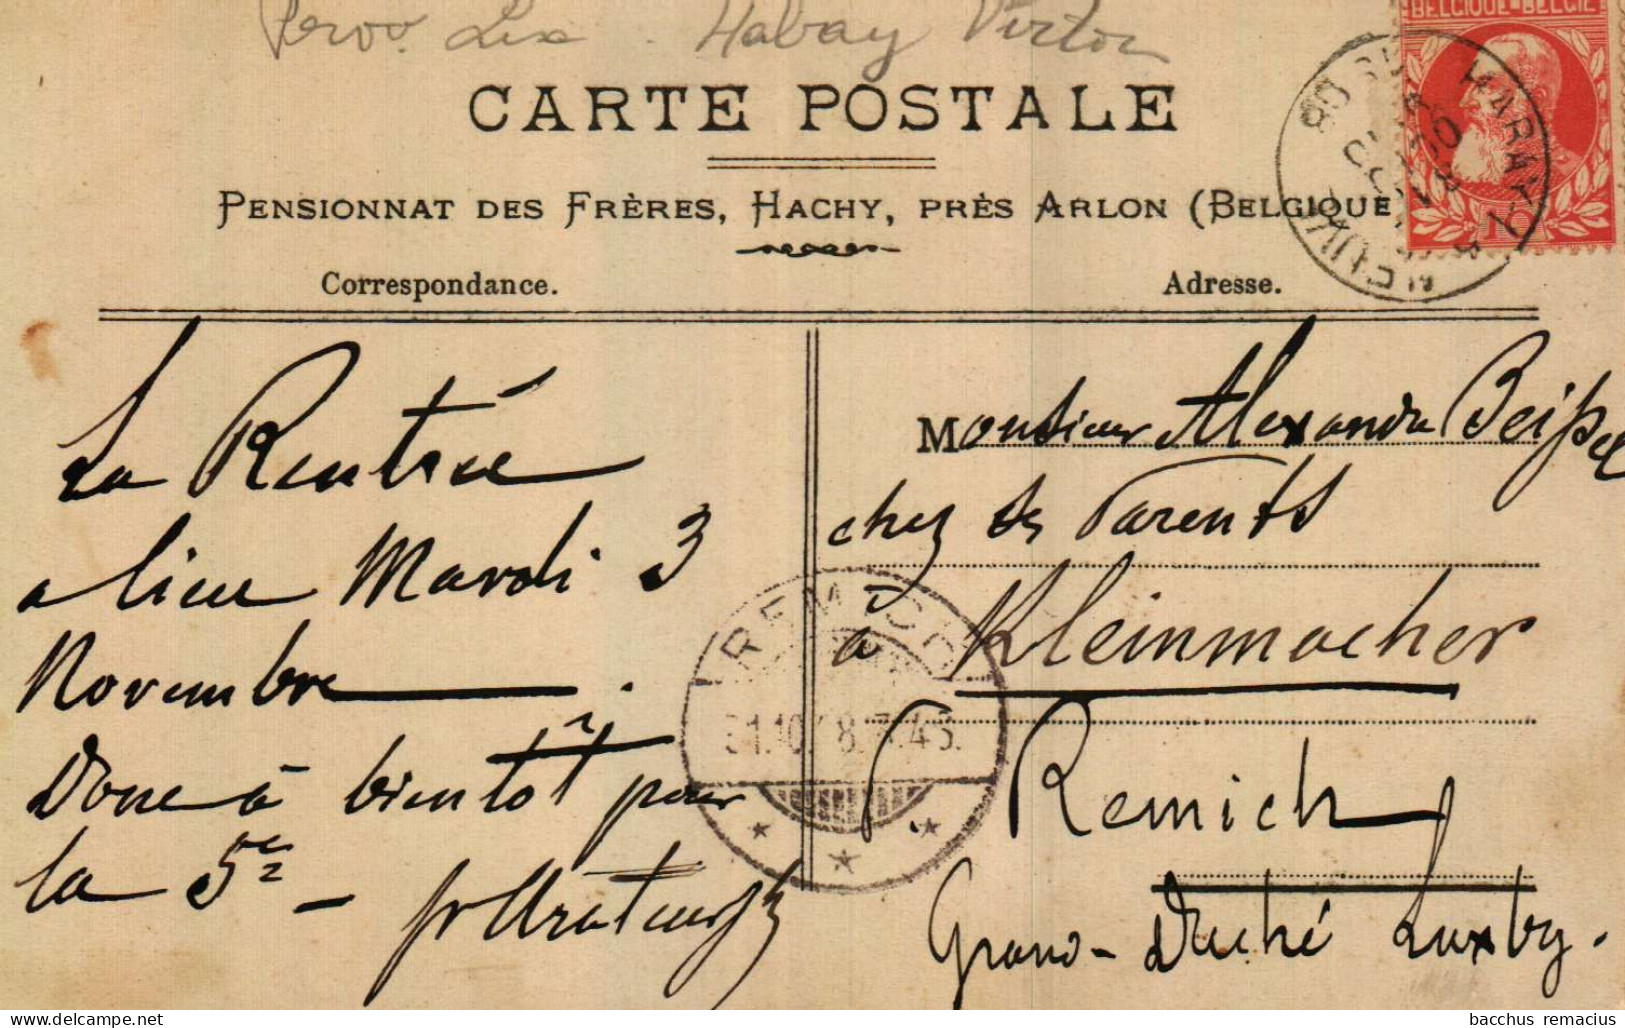 Prov. Lux. Habay Virton
BELGIQUE-BELGIË
CARTE POSTALE
PENSIONNAT DES FRÈRES, HACHY, PRÈS ARLON (BELGIQUE)
Correspondance.
Adresse.
La Rentrée
a lieu Mardi 3
Novembre.
Donc à bientôt pour
la 5e –
Monsieur Alexandre Beissel
chez ses Parents
à Kleinmacher
p. Remich
Grand-Duché Luxbg.
REMICH
31.10.08.7.45.
10
bacchus remacius